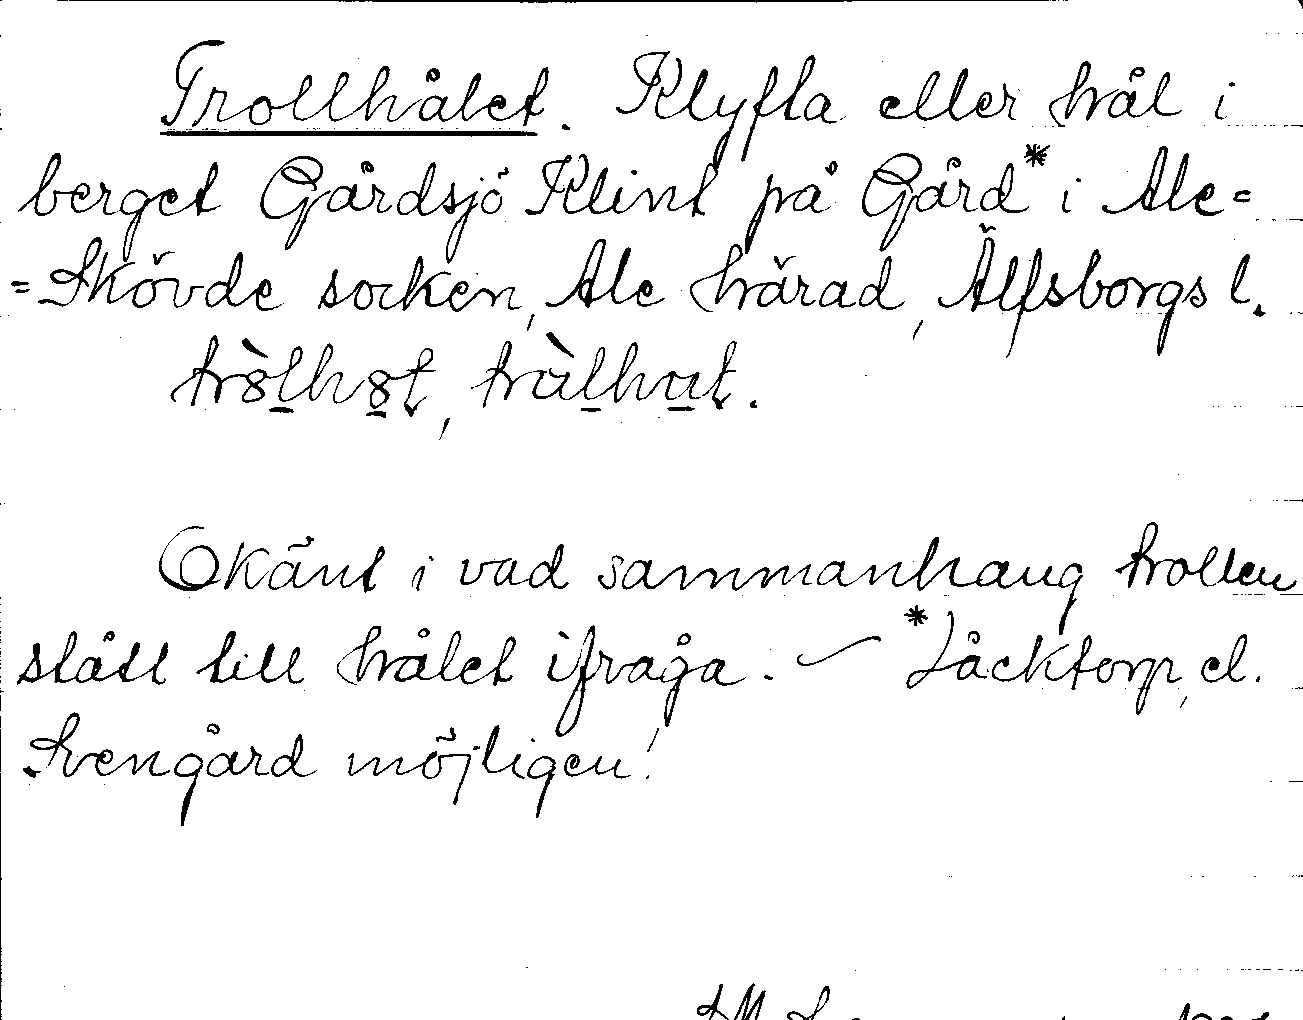 Trollhålet. Klyfta eller hål i
berget Gårdsjö Klint på Gård* i Ale=
=Skövde socken, Ale härad, Älfsborgs l.
Okänt i vad sammanhang trollen
stått till hålet ifråga. — *Låcktorp, el.
Svengård möjligen!